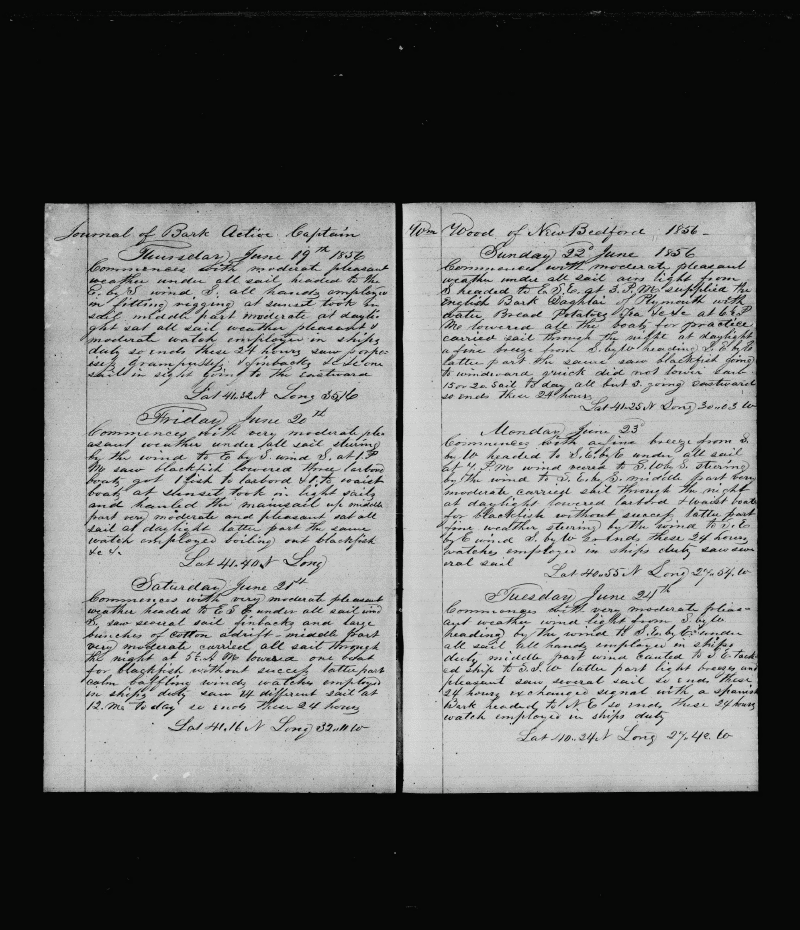 Journal of Bark Active Captain
Thursday June 19th 1856
Commences with moderate pleasant
weather under all sail headed to the
E by S wind S. all hands employed
in fitting rigging at sunset took in
sail middle part moderate at dayli
ght sat all sail weather pleasant &
moderate watch employed in ships
duty so ends these 24 hours saw porpo
ises grampuses & finbacks &c &c one
sail in sight going to the eastward
Lat 41.32 N Long
Friday June 20th
Commences with very moderate plea
asant weather under all sail steering
by the wind to E by S. wind S. at 1. P
M saw blackfish lowered three larbord
boat got 1 fish to larbord & 1. to waist
boat at sunset took in light sails
and hauled the mainsail up middle
part very moderate and pleasant sat all
sail at daylight latter part the same
watch employed boiling out blackfish
&c &.
Lat 41.40 N Long
Saturday June 21st
Commences with very moderate pleasant
weather headed to E S E under all sail wind
S, saw several sail finbacks and large
bunches of cotton adrift - middle part
very moderate carried all sail through
the night at A M lowered one boat
for blackfish without success latter part
calm baffling winds watches employed
in ships duty saw 24 different sail at
12. M to day so ends these 24 hours
Lat 41.16 N Long 32.11 W
Wm Wood of New Bedford, 1856 -
Sunday 22d June 1856
Commences with moderate pleasant
weather under all sail airs light from
S headed to E. S. E. at 3. P. M supplied the
English Bark of Plymouth with
water, Bread Potatoes Tea &c &c at P
M lowered all the boats for practice
carried sail through the night at daylight
a fine breeze from S. by W heading S. E by E
latter part the same saw blackfish going
to windward quick did not lower saw
15 or 20 sail to day all but 3. going eastward
so ends these 24 hours
Lat 41.25 N Long 30.03 W
Monday June 23d
Commences with a fine breeze from S.
by W headed to S. E. by E under all sail
at 4. P M wind veered to S. W by S. steering
by the wind to S. E. by S. middle part very
moderate carried sail through the night
at daylight lowered larbord & waist boats
for blackfish without success latter part
fine weather steering by the wind to S. E
by E wind S. by W so ends these 24 hours
watches employed in ships duty saw sev
eral sail
Lat 40.55 N Long 27.54. W
Tuesday June 24th
Commences with very moderate pleas-
ant weather wind light from S. by W
heading by the wind to S. E. by E. under
all sail all hands employed in ships
duty middle part wind canted to S. E. tack-
ed ship to S. S. W latter part light breezes and
pleasant saw several sail so ends these
24 hours exchanged signal with a spanish
Bark headed to N. E so ends these 24 hours
watch employed in ships duty
Lat 40.24 N Long 27.42. W